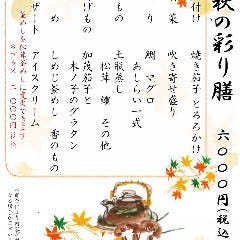 秋の彩り膳
六〇〇〇円(税込
付 焼き茄子とろろかけ
菜 吹き寄せ盛り
り 鯛 マグロ
あしらい一式
土瓶蒸し
松茸 鱧 その他
げもの 加茂茄子と
木ノ子のグラタン
め しめじ釜めし 香のもの
ザート アイスクリーム
釜めしを松茸釜めしに変更できます